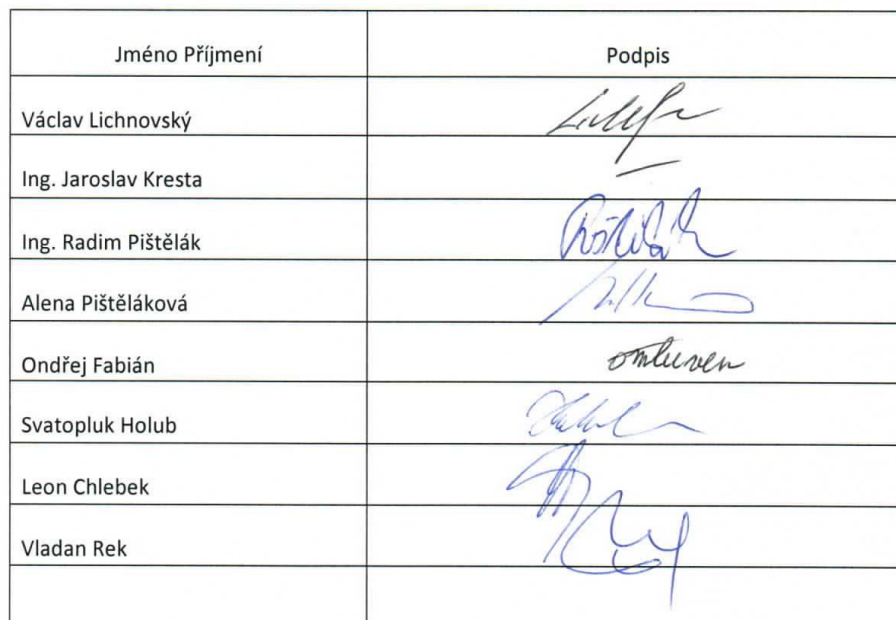 Jméno Příjmení Podpis
Václav Lichnovský
Ing. Jaroslav Kresta —
Ing. Radim Pištělák
Alena Pištěláková
Ondřej Fabián omluven
Svatopluk Holub
Leon Chlebek
Vladan Rek